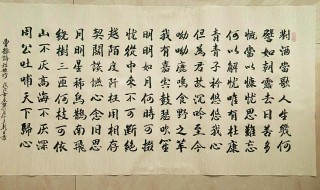 對酒當歌人生幾何
譬如朝露去日苦多
慨當以慷憂思難忘
何以解憂唯有杜康
青青子衿悠悠我心
但為君故沉吟至今
呦呦鹿鳴食野之苹
我有嘉賓鼓瑟吹笙
明明如月何時可掇
憂從中來不可斷絕
越陌度阡枉用相存
契闊談讌心念舊恩
月明星稀烏鵲南飛
繞樹三匝何枝可依
山不厭高海不厭深
周公吐哺天下歸心
曹操詩短歌行